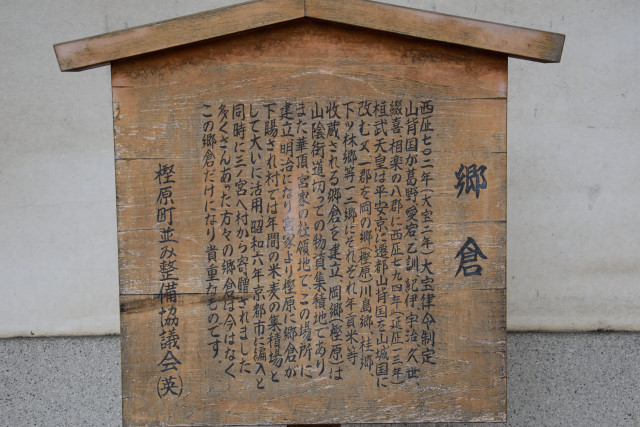 郷倉
西圧七〇二年(大宝二年)大宝律令制定
山背国が葛野愛宕乙訓紀伊宇治久世、
綴喜相楽の八郡に西圧七九四年(延圧一三年)
桓武天皇は平安京に遷都山背国を山城国に
改む又、一郡を岡の郷(樫原)川島郷、桂郷
下ツ林郷等十二郷にそれぞれ年貢米等
収蔵される郷倉を建立、岡郷(樫原)は
山陰街道切っての物資集積地であり
また華頂ノ宮家の社領地で、この場所に
建立、明治になり宮家より樫原に郷倉が
下賜され村では年間の米麦の集積場と
して大いに活用昭和六年京都市に編入と
同時に三ノ宮へ村から寄贈されました
多くさんあった方々の郷倉は今はなく
この郷倉だけになり貴重なものです。
樫原町並み整備協議会(英)